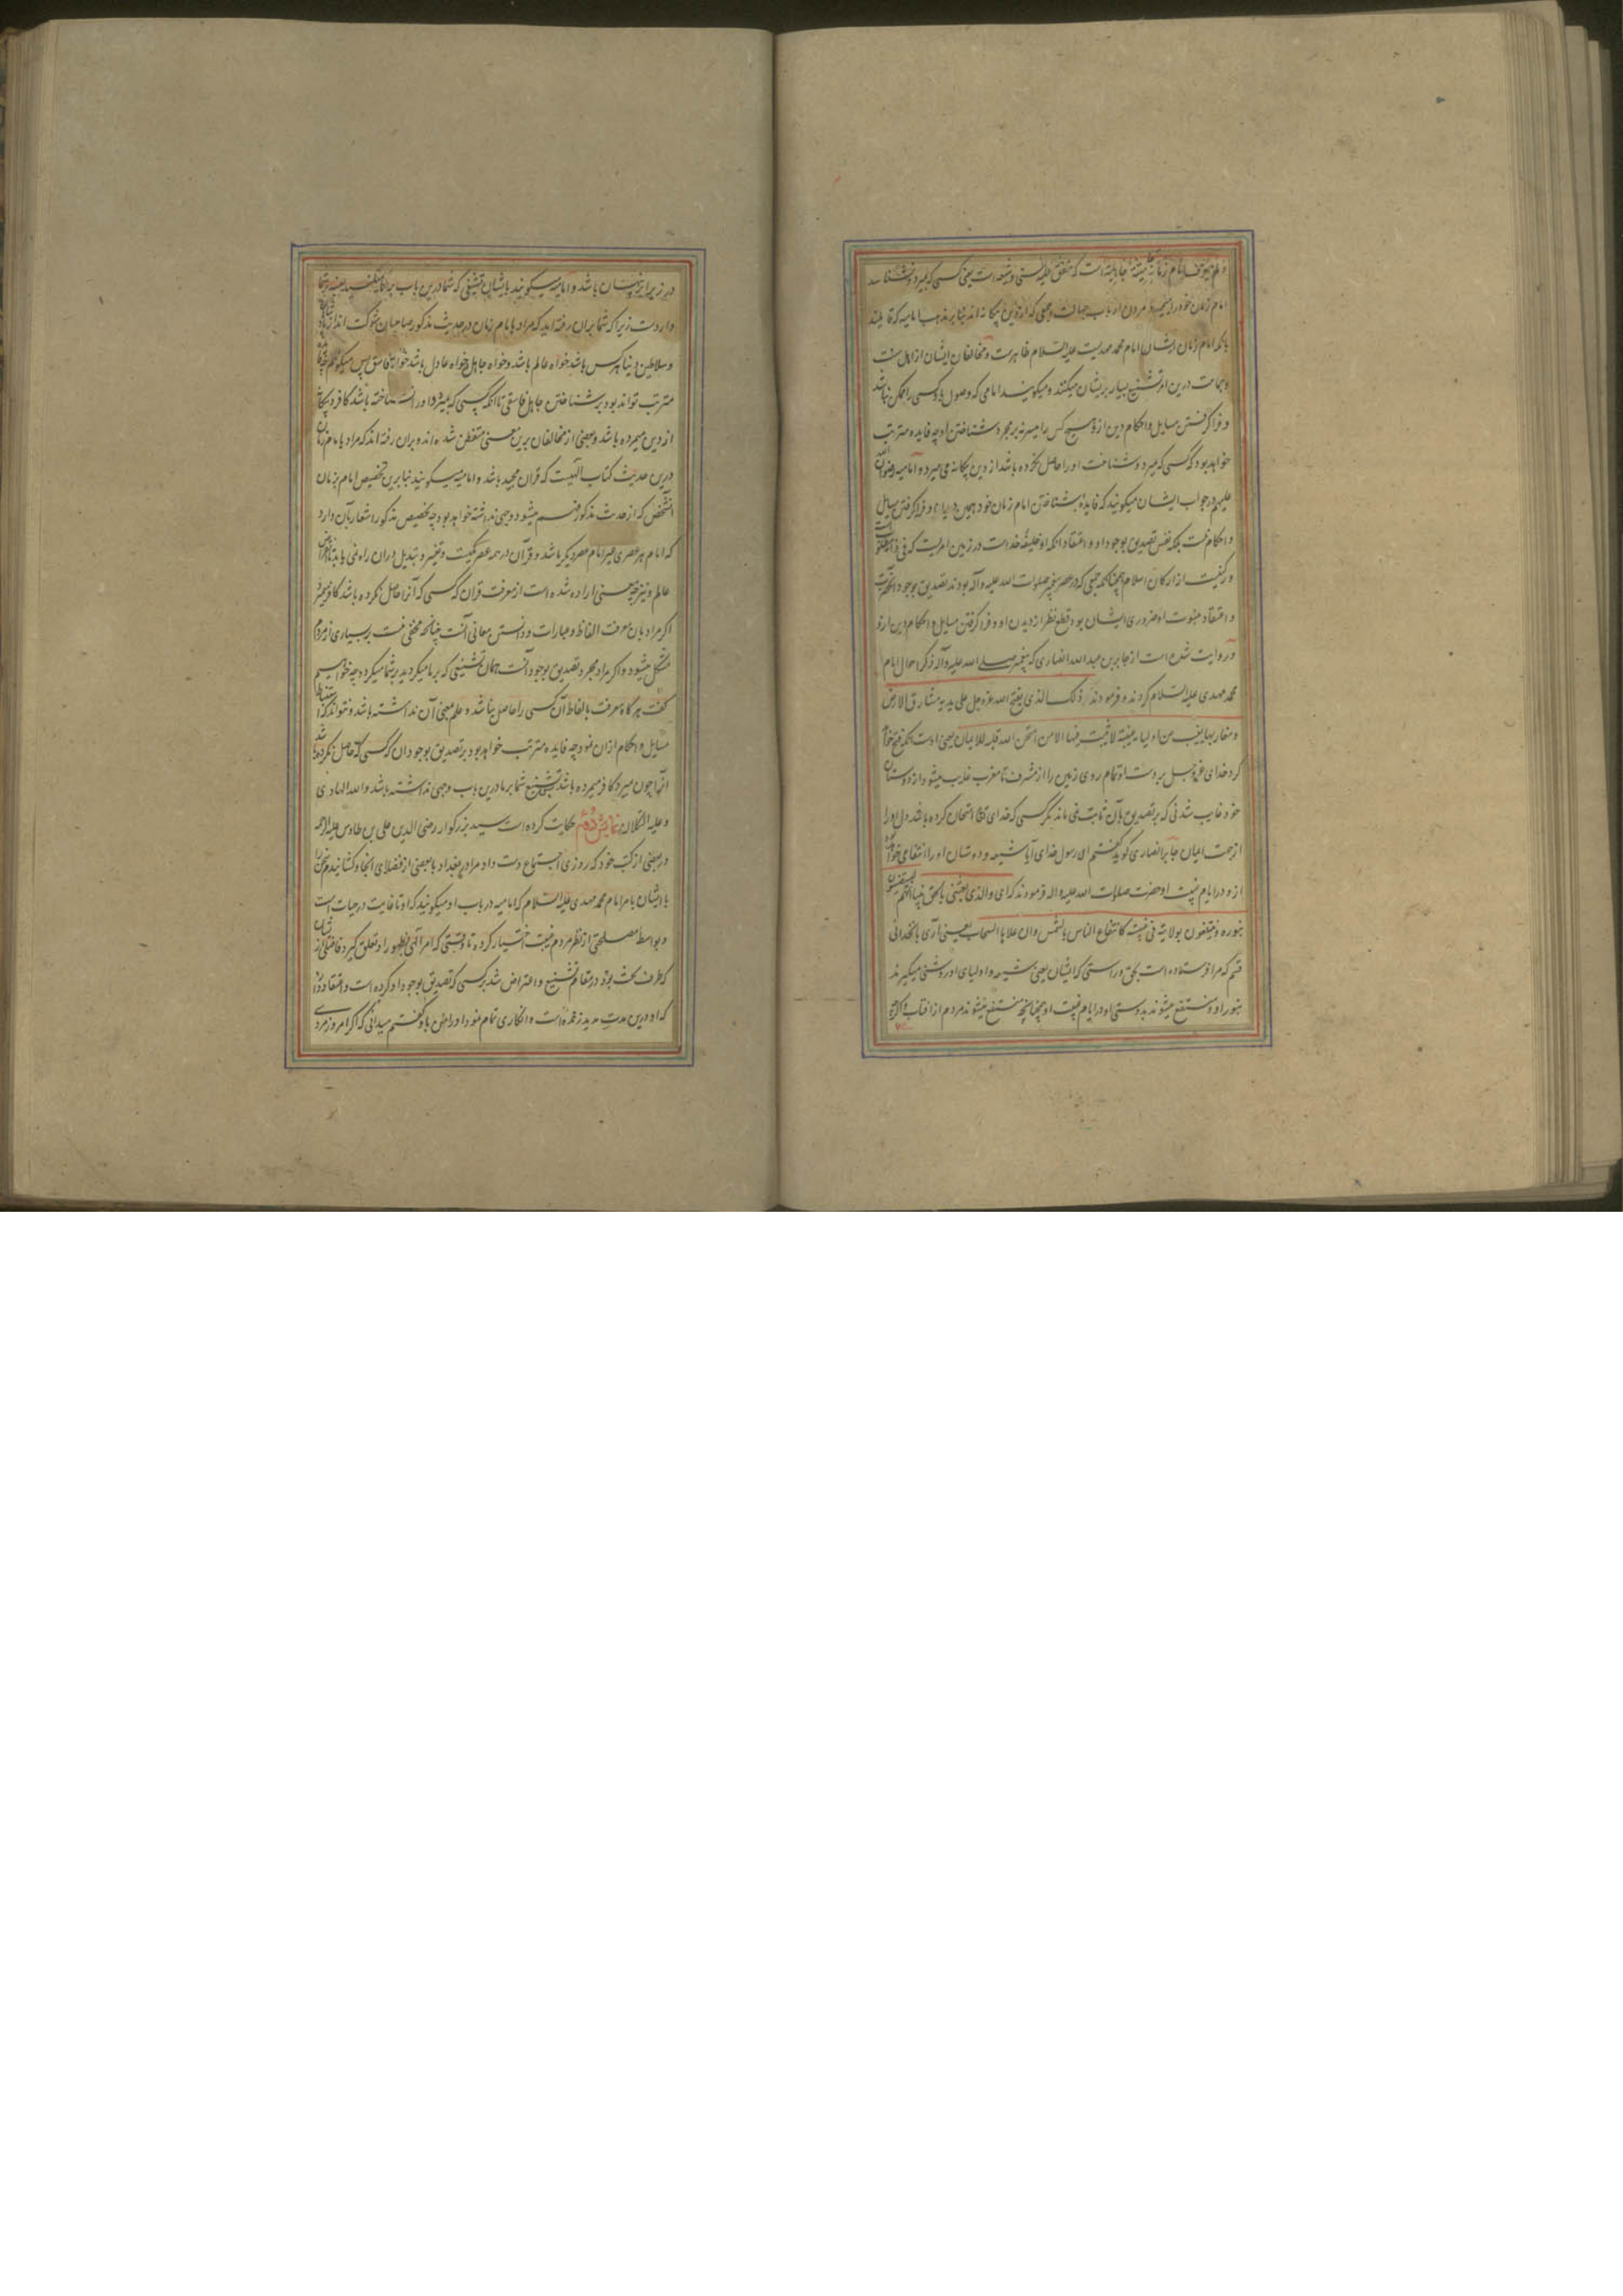 و لم یعرف امام زمانه میتة جاهلیة است که متفق علیه سنی و شیعه است یعنی کسی که بمیرد و نشناسد
امام زمان خود را مردن ارباب جهالت و جمعی که از دین بیکانه اند بنا بر مذهب امامیه که قایلند
بانکه امام زمان ایشان امام محمد مهدیست علیه السلام ظاهرست و مخالفان ایشان از اهل سنت
و جماعت درین امر تشنیع بسیار بر ایشان میکنند و میکویند امامی که وصول باو کسی را ممکن نباشد
و فرا کرفتن مسایل و احکام دین ازو هیچ کس را میسر نه بر مجرد شناختن او چه فایده مترتب
خواهد بود که کسی که میرد و شناخت او را حاصل نکرده باشد از دین بیکانه می میرد و امامیه رضوان الله
علیهم در جواب ایشان میکویند که فایدهٔ شناختن امام زمان خود همین دیدار او و فرا کرفتن مسایل
و احکام نیست بلکه نفس تصدیق بوجود او و اعتقاد انکه او خلیفهٔ خداست در زمین امریست که فی ذاته مطلوبست
و رکنیست از ارکان اسلام همچنانکه جمعی که در عصر پیغمبر صلوات الله علیه و آله بودند تصدیق بوجود آنحضرت
و اعتقاد بنبوت او ضروری ایشان بود قطع نظر از دیدن او و فرا کرفتن مسایل و احکام دین ازو
و روایت شده است از جابر بن عبد الله انصاری که پیغمبر صلی الله علیه و آله ذکر احوال امام
محمد مهدی علیه السلام کردند و فرمودند ذلک الذی یفتح الله عز و جل علی یدیه مشارق الارض
و مغاربها یغیب من اولیایه غیبة لا یثبت فیها الا من امتحن الله قلبه للایمان یعنی اوست انکه فتح خواهد
کرد خدای عز و جل بر دست او تمام روی زمین را از مشرق تا مغرب غایب میشود از دوستان
خود غایب شدنی که بر تصدیق بآن ثابت نمی ماند مکر کسی که خدای تعالی امتحان کرده باشد دل او را
از جهت ایمان جابر انصاری کوید کفتم ای رسول خدای آیا شیعه و دوستان او را انتفاعی خواهد بود
ازو در ایام غیبت او حضرت صلوات الله علیه و اله فرمودند که ای والذی بعثنی بالحق نبیا انهم یستضیئون
بنوره و ینتفعون بولایته فی غیبته کانتفاع الناس بالشمس وان علاها السحاب یعنی آری بانخدائی
قسم که مرا فرستاده است بحق و راستی که ایشان یعنی شیعه و اولیای او روشنی میکیرند
بنور او و منتفع میشوند بدوستی او در ایام غیبت او همچنانچه منتفع میشوند مردم از افتاب و اکرچه
در زیر ابر پنهان باشد و امامیه میکویند بایشان تشنیعی که شما درین باب بر ما میکنید بعینه بر شما
واردست زیرا که شما بران رفته اید که مراد بامام زمان در حدیث مذکور صاحبان شوکت اند از پادشاهان
و سلاطین دنیا هر کس باشد خواه عالم باشد و خواه جاهل خواه عادل باشد خواه فاسق پس میکوئیم چه فایده
مترتب تواند بود بر شناختن جاهل فاسقی تا انکه کسی که بمیرد و او را نشناخته باشد کافر و بیکانه
از دین میمرده باشد و بعضی از مخالفان برین معنی متفطن شده اند و بران رفته اند که مراد بامام زمان
درین حدیث کتاب الهیست که قران مجید باشد و امامیه میکویند بنا برین تخصیص امام بزمان
آنشخص که از حدیث مذکور فهم میشود وجهی نداشته خواهد بود چه تخصیص مذکور اشعار بآن دارد
که امام هر عصری غیر امام عصر دیکر باشد و قرآن در همه عصر یکیست و تغییر و تبدیل دران راه نمی یابد
عالم و نیز چه معنی اراده شده است از معرفت قران که کسی که آنرا حاصل نکرده باشد کافر میمیرد
اکر مراد بان معرفت الفاظ و عبارات و دانستن معانی آنست چنانکه مخفی نیست بر بسیاری از مردم
مشکل میشود و اکر مراد مجرد تصدیق بوجود آنست همان تشنیعی که بر ما میکردید بر شما میکردد چه خواهیم
کفت هر کاه معرفت بالفاظ آن کسی را حاصل نباشد و علم بمعنی آن نداشته باشد و نتواند که استنباط
مسایل و احکام ازان نمود چه فایده مترتب خواهد بود بر تصدیق بوجود ان که کسی که حاصل نکرده باشد
آنرا چون میرد کافر میمرده باشد تشنیع شما بر ما درین باب وجهی نداشته باشد والله الهادی
و علیه التکلان نمایش دوم حکایت کرده است سید بزرکوار رضی الدین علی بن طاوس علیه الرحمه
در بعضی از کتب خود که روزی اجتماع دست داد مرا در بغداد با بعضی از فضلای انجا و کشانیدم سخن را
با ایشان بامر امام محمد مهدی علیه السلام که امامیه در باب او میکویند که او تا غایت در حیات است
و بواسطه مصلحتی از نظر مردم غیبت اختیار کرده تا وقتی که امر الهی بظهور او تعلق کیرد فاضلی از ایشان
که طرف بحث بود در مقام تشنیع و اعتراض شد بر کسی که تصدیق بوجود او کرده است و اعتقاد دارد
که او درین مدت مدید زنده است و انکاری تمام نمود او را من باو کفتم میدانی که اکر امروز مردی